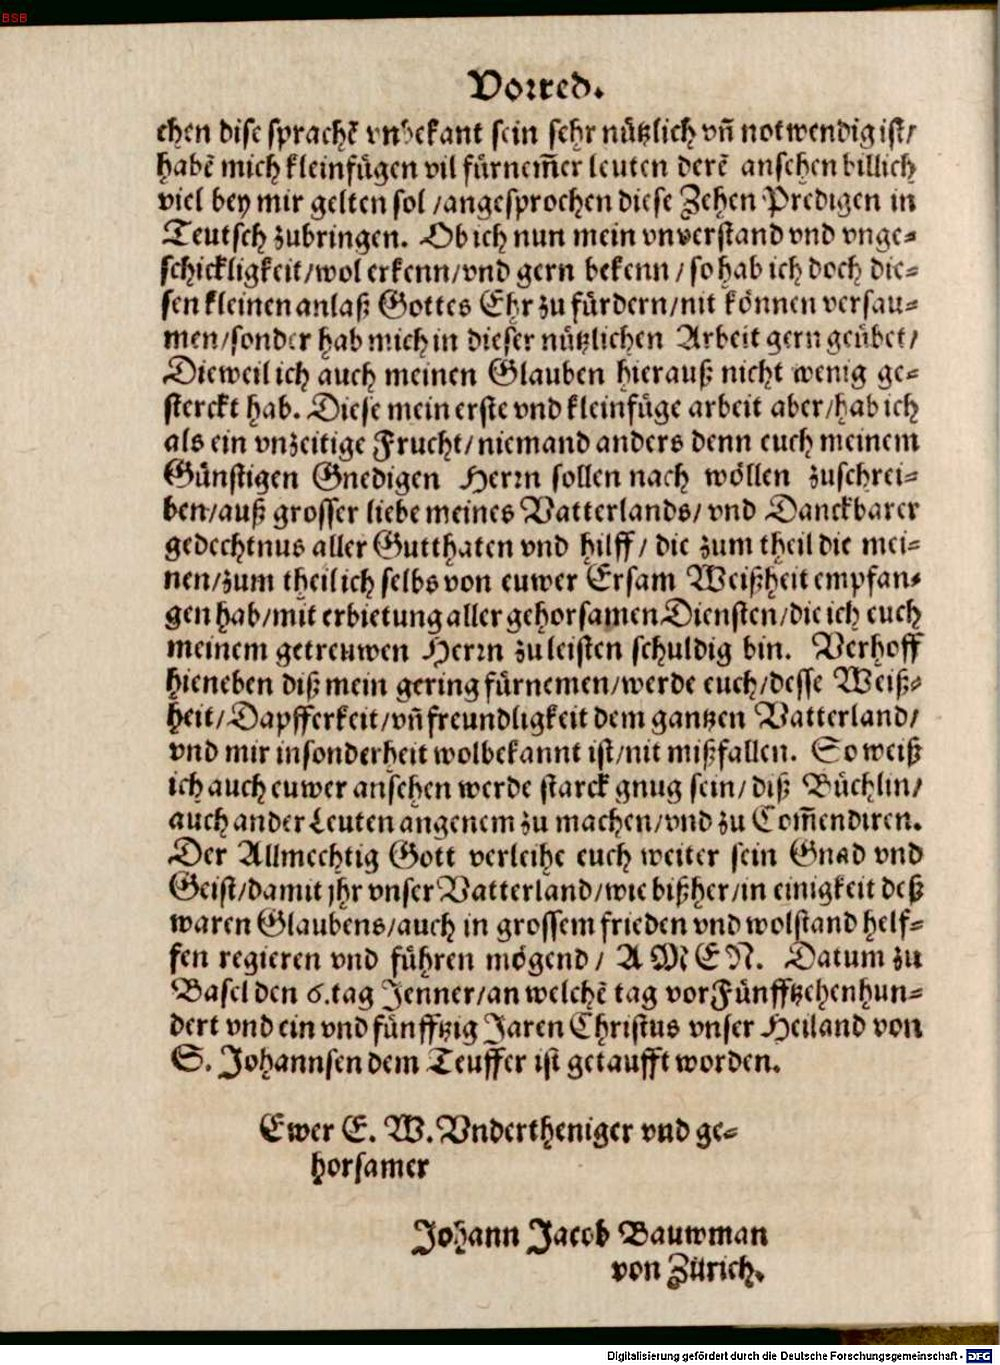 BSB
Vorred.
chen dise sprachē vnbekant sein sehr nützlich vñ notwendig ist/
habē mich kleinfügen vil fürnem̄er leuten derē ansehen billich
viel bey mir gelten sol/angesprochen diese Zehen Predigen in
Teutsch zubringen. Ob ich nun mein vnverstand vnd vnge⸗
schickligkeit/wol erkenn/vnd gern bekenn/so hab ich doch die⸗
sen kleinen anlaß Gottes Ehr zu fürdern/nit können versau⸗
men/sonder hab mich in dieser nützlichen Arbeit gern geübet/
Dieweil ich auch meinen Glauben hierauß nicht wenig ge⸗
sterckt hab. Diese mein erste vnd kleinfüge arbeit aber/hab ich
als ein vnzeitige Frucht/niemand anders denn euch meinem
Günstigen Gnedigen Herrn sollen nach wöllen zuschrei⸗
ben/auß grosser liebe meines Vatterlands/vnd Danckbarer
gedechtnus aller Gutthaten vnd hilff/die zum theil die mei⸗
nen/zum theil ich selbs von euwer Ersam Weißheit empfan⸗
gen hab/mit erbietung aller gehorsamen Diensten/die ich euch
meinem getreuwen Herrn zu leisten schuldig bin. Verhoff
hieneben diß mein gering fürnemen/werde euch/desse Weiß⸗
heit/Dapfferkeit/vñ freundligkeit dem gantzen Vatterland/
vnd mir insonderheit wolbekannt ist/nit mißfallen. So weiß
ich auch euwer ansehen werde starck gnug sein/diß Büchlin/
auch ander Leuten angenem zu machen/vnd zu Com̄endiren.
Der Allmechtig Gott verleihe euch weiter sein Gnad vnd
Geist/damit jhr vnser Vatterland/wie bißher/in einigkeit deß
waren Glaubens/auch in grossem frieden vnd wolstand helf⸗
fen regieren vnd führen mögend/AMEN. Datum zu
Basel den 6.tag Jenner/an welchē tag vor Fünfftzehenhun⸗
dert vnd ein vnd fünfftzig Jaren Christus vnser Heiland von
S. Johannsen dem Teuffer ist getaufft worden.
Ewer E. W. Vndertheniger vnd ge⸗
horsamer
Johann Jacob Bauwman
von Zürich.
Digitalisierung gefördert durch die Deutsche Forschungsgemeinschaft - DFG